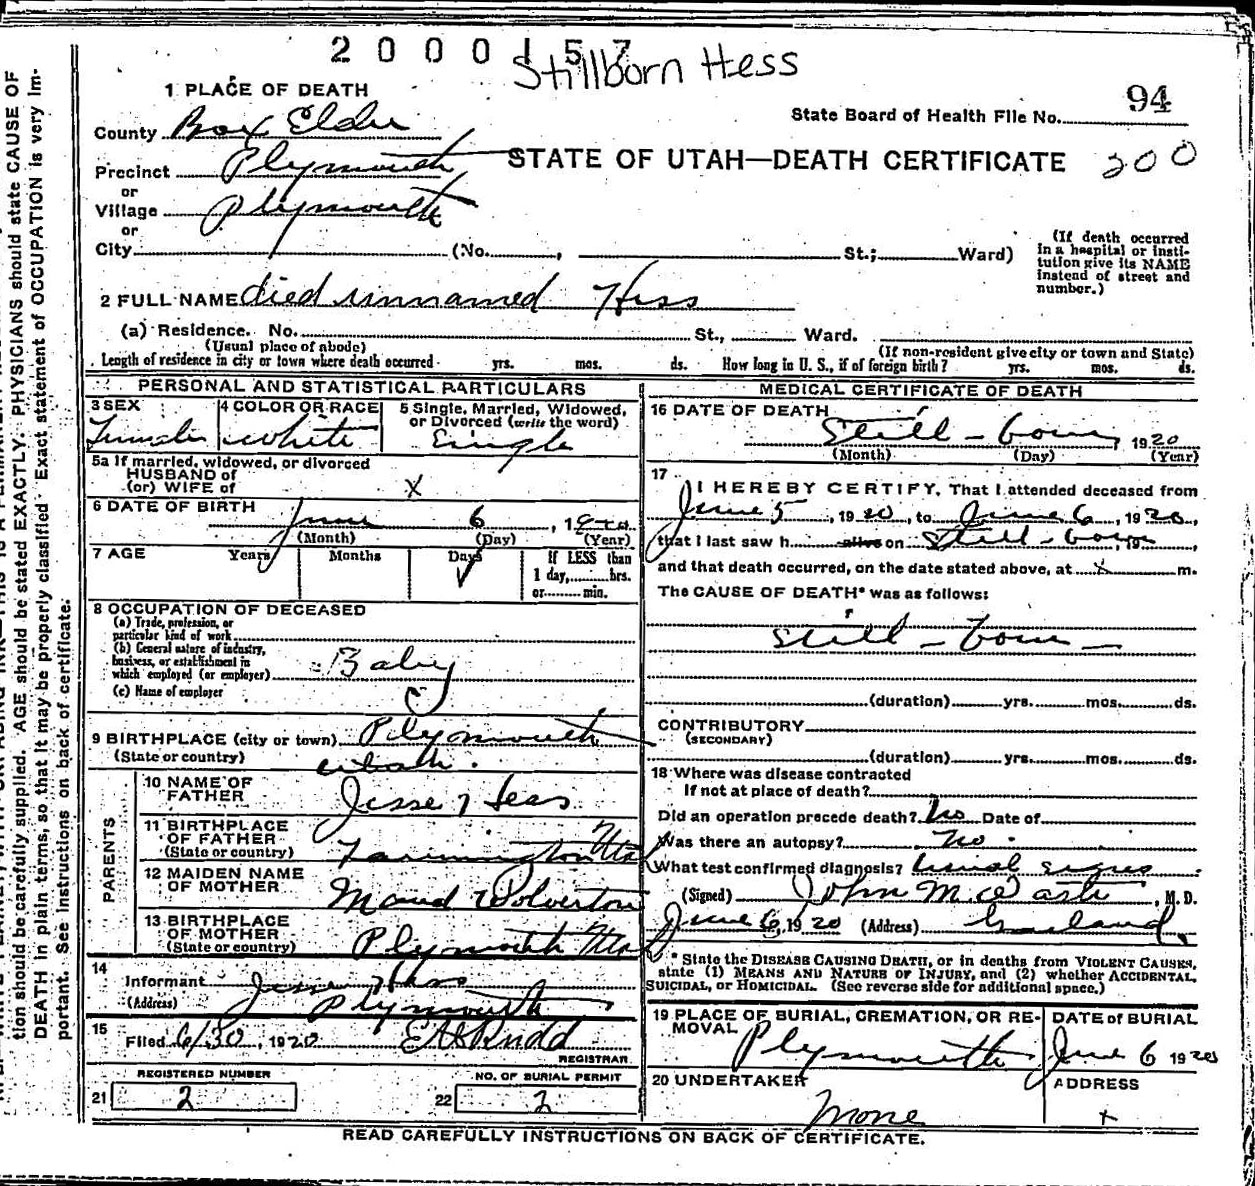 2000157
Stillborn Hess
94
State Board of Health File No.
1 PLACE OF DEATH
County Box Elder
STATE OF UTAH—DEATH CERTIFICATE
200
Precinct Plymouth
or
Village Plymouth
or
City (No. , St.; Ward)
(If death occurred
in a hospital or insti-
tution give its NAME
instead of street and
number.)
2 FULL NAME died unnamed Hess
(a) Residence. No. St., Ward.
(Usual place of abode)
(If non-resident give city or town and State)
Length of residence in city or town where death occurred yrs. mos. ds. How long in U. S., if of foreign birth? yrs. mos. ds.
PERSONAL AND STATISTICAL PARTICULARS
3 SEX
Female
4 COLOR OR RACE
White
5 Single, Married, Widowed,
or Divorced (write the word)
Single
5a If married, widowed, or divorced
HUSBAND of
(or) WIFE of
X
6 DATE OF BIRTH
June 6, 1920
(Month) (Day) (Year)
7 AGE Years Months Days
If LESS than
1 day, hrs.
or min.
8 OCCUPATION OF DECEASED
(a) Trade, profession, or
particular kind of work
(b) General nature of industry,
business, or establishment in
which employed (or employer)
Baby
(c) Name of employer
9 BIRTHPLACE (city or town) Plymouth
(State or country) Utah.
PARENTS
10 NAME OF
FATHER
Jesse Hess
11 BIRTHPLACE
OF FATHER
(State or country)
Farmington Utah
12 MAIDEN NAME
OF MOTHER
Maud Wolverton
13 BIRTHPLACE
OF MOTHER
(State or country)
Plymouth Utah
14
Informant Jesse Hess
(Address) Plymouth
15
Filed 6/30, 1920
Rudd
REGISTRAR
REGISTERED NUMBER
21 2
NO. OF BURIAL PERMIT
22 2
MEDICAL CERTIFICATE OF DEATH
16 DATE OF DEATH
Still-born, 1920
(Month) (Day) (Year)
17
I HEREBY CERTIFY, That I attended deceased from
June 5, 1920, to June 6, 1920,
that I last saw h alive on still-born, 19
and that death occurred, on the date stated above, at X m.
The CAUSE OF DEATH* was as follows:
still-born
(duration) yrs. mos. ds.
CONTRIBUTORY
(SECONDARY)
(duration) yrs. mos. ds.
18 Where was disease contracted
If not at place of death?
Did an operation precede death? No Date of
Was there an autopsy? No.
What test confirmed diagnosis? Usual signs
(Signed) John M. , M.D.
June 6, 1920 (Address) Garland.
* State the DISEASE CAUSING DEATH, or in deaths from VIOLENT CAUSES,
state (1) MEANS AND NATURE OF INJURY, and (2) whether ACCIDENTAL,
SUICIDAL, or HOMICIDAL. (See reverse side for additional space.)
19 PLACE OF BURIAL, CREMATION, OR RE-
MOVAL
Plymouth
DATE of BURIAL
June 6 1920
20 UNDERTAKER
None
ADDRESS
X
READ CAREFULLY INSTRUCTIONS ON BACK OF CERTIFICATE.
tion should be carefully supplied. AGE should be stated EXACTLY. PHYSICIANS should state CAUSE OF
DEATH in plain terms, so that it may be properly classified. Exact statement of OCCUPATION is very im-
portant. See instructions on back of certificate.